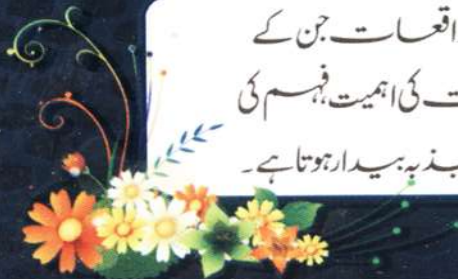 اقعات جن کے
ت کی اہمیت، فہم کی
بذبہ بیدار ہوتا ہے۔